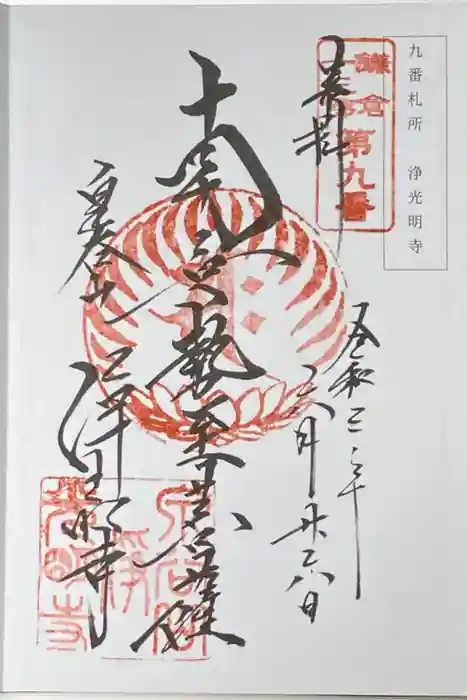 九番札所 浄光明寺
鎌倉
第九番
奉拝
令和三年
六月廿六日
南無勢至菩薩
泉谷山
浄光明寺